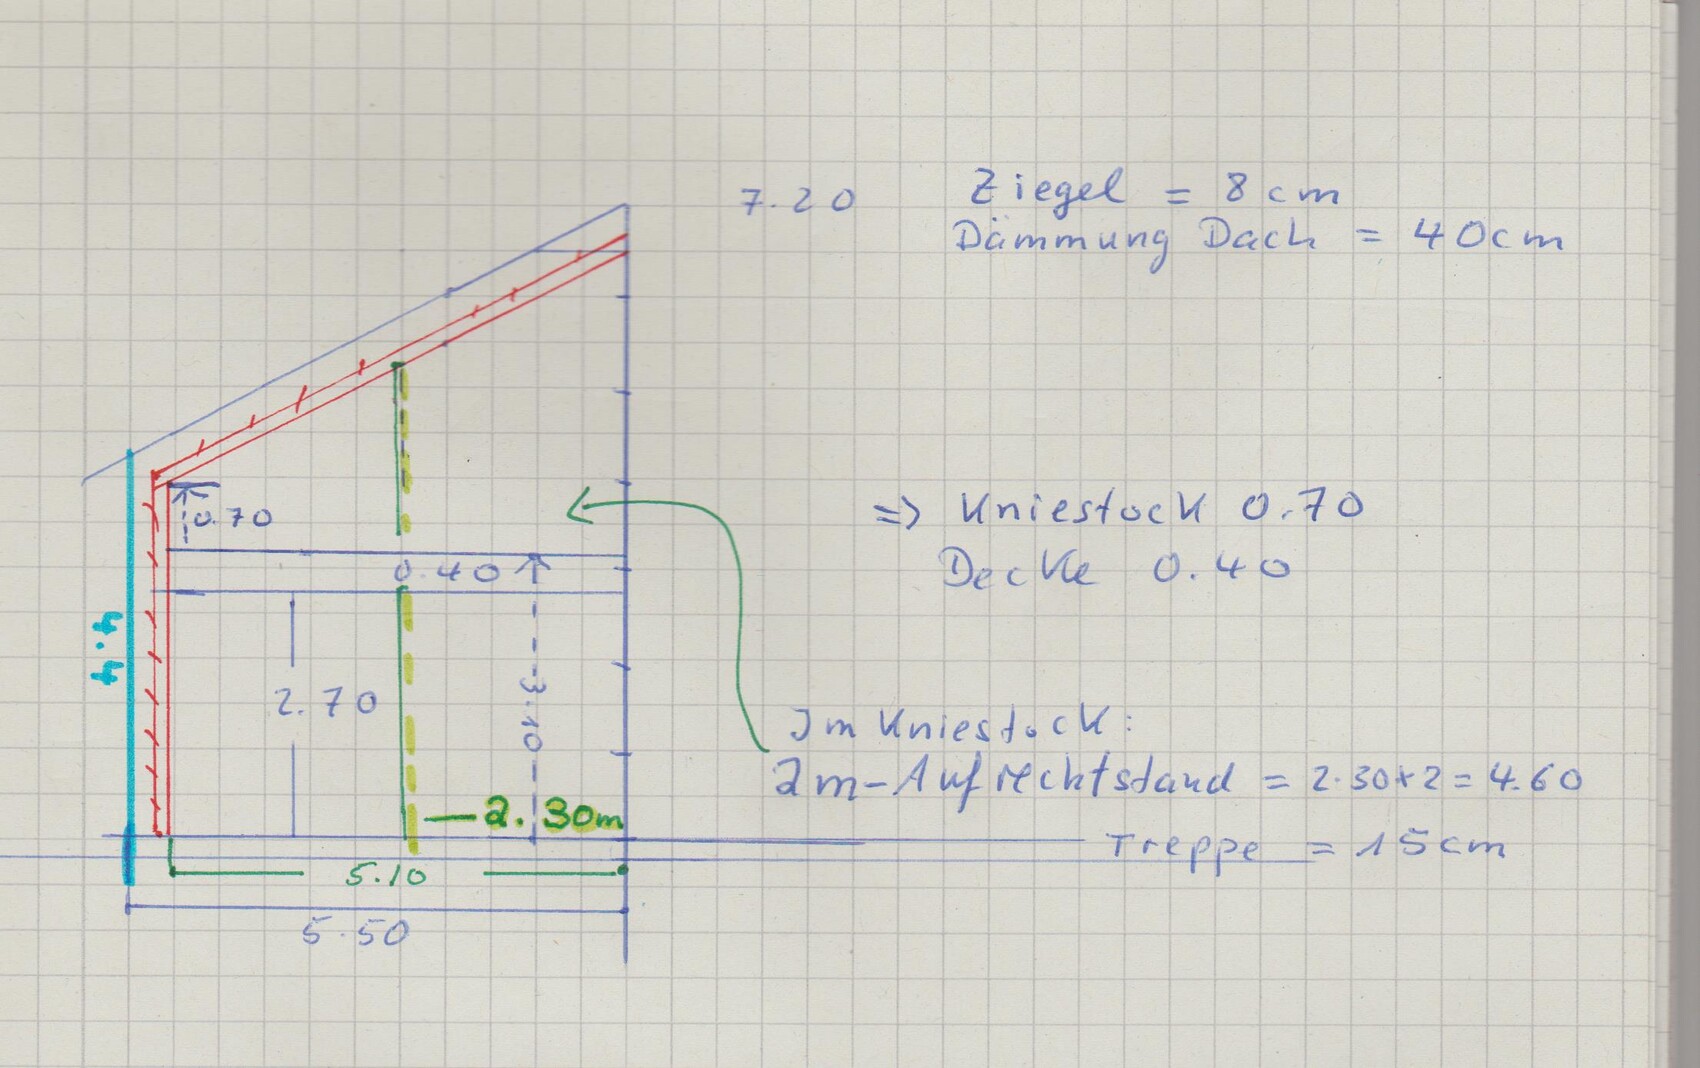 7.20
Ziegel = 8cm
Dämmung Dach = 40cm
0.70
=> Kniestock 0.70
0.40
Decke 0.40
4.4
2.70
3.10
Im Kniestock:
2m-Aufrechtstand = 2.30x2 = 4.60
2.30m
Treppe = 15cm
5.10
5.50